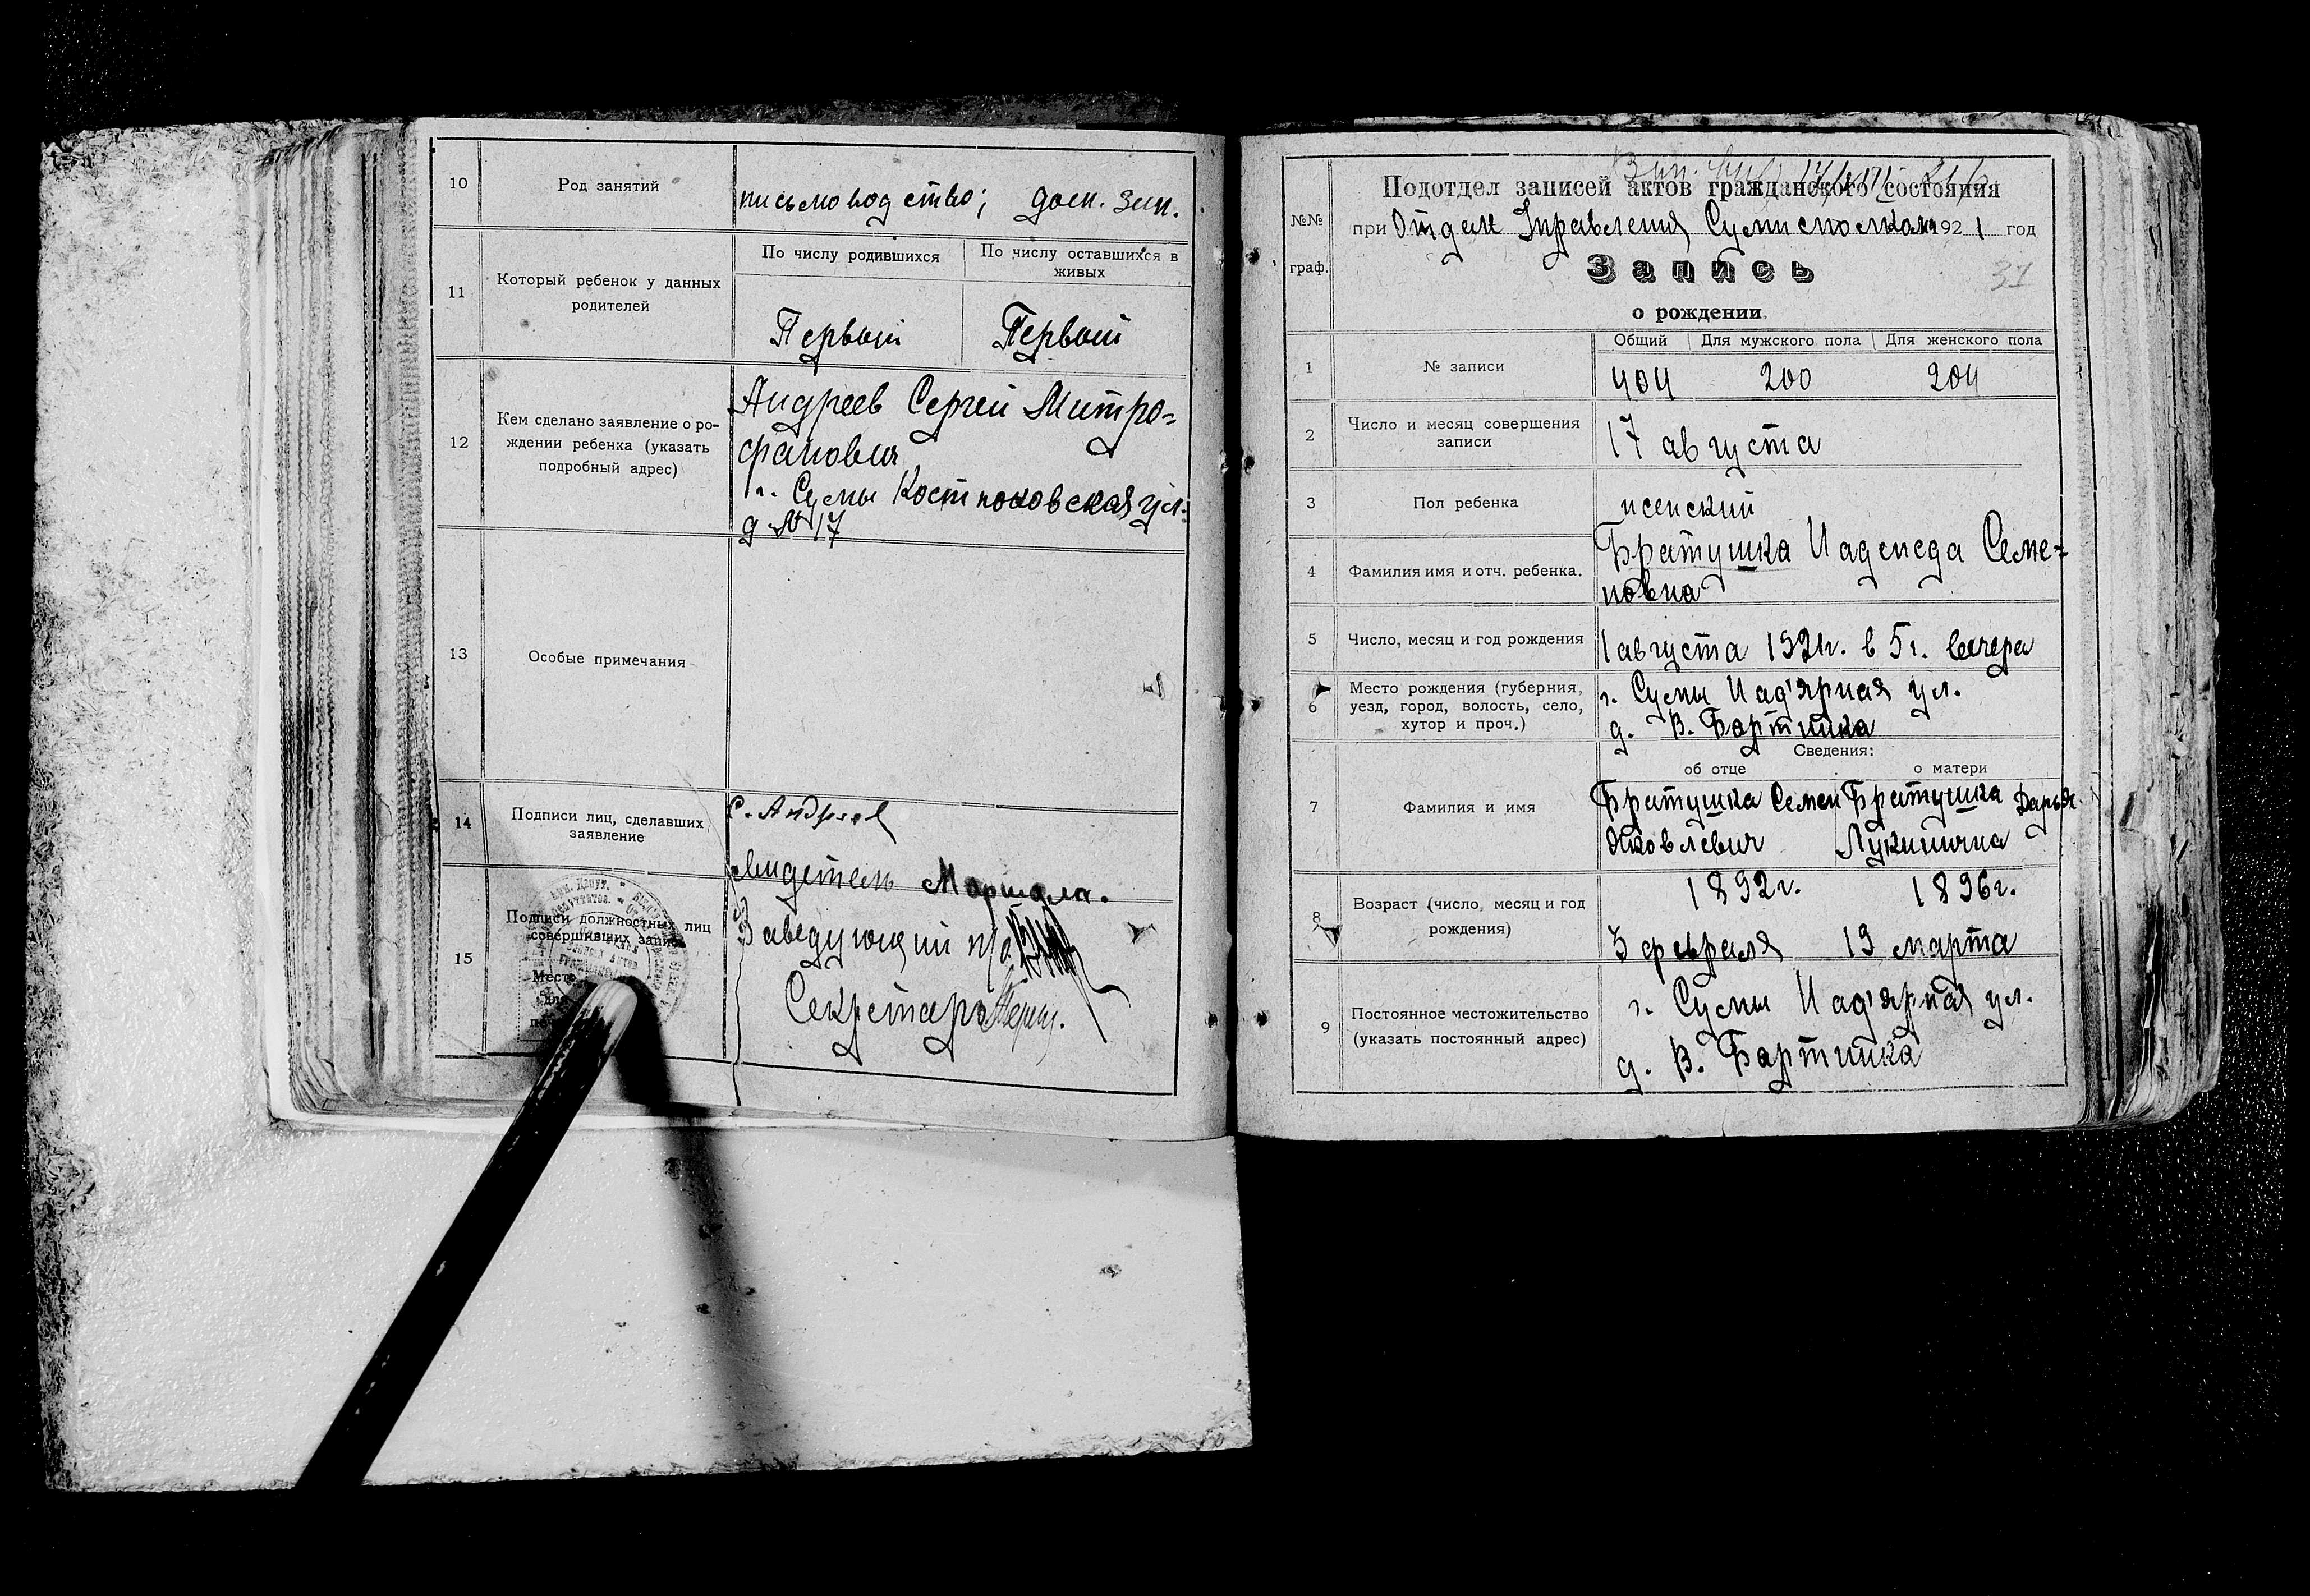 10
Род занятий
письмоводство; дом. зан.
11
Который ребенок у данных
родителей
По числу родившихся
По числу оставшихся в
живых
Первый
Первый
12
Кем сделано заявление о ро-
ждении ребенка (указать
подробный адрес)
Андреев Сергей Митро=
фанович
г. Сумы Костюковская ул.
д № 17
13
Особые примечания
14
Подписи лиц, сделавших
заявление
С. Андреев
свидетель
15
Подписи должностных лиц
совершивших запись
Место
для
Заведующий п/о
Секретарь
№№
граф.
Подотдел записей актов гражданского состояния
при Отделе Управления Сумисполкома 1921 год
Запись
31
о рождении.
1
№ записи
Общий
Для мужского пола
Для женского пола
404
200
204
2
Число и месяц совершения
записи
17 августа
3
Пол ребенка
женский
4
Фамилия имя и отч. ребенка.
Братушка Надежда Семе=
новна
5
Число, месяц и год рождения
1 августа 1921г. в 5 г. вечера
6
Место рождения (губерния,
уезд, город, волость, село,
хутор и проч.)
г. Сумы Над'ярная ул.
д. В. Бартишка
Сведения:
об отце
о матери
7
Фамилия и имя
Братушка Семен
Яковлевич
Братушка Дарья
Лукинична
8
Возраст (число, месяц и год
рождения)
1892г.
3 февраля
1896г.
19 марта
9
Постоянное местожительство
(указать постоянный адрес)
г. Сумы Над'ярная ул.
д. В. Бартишка